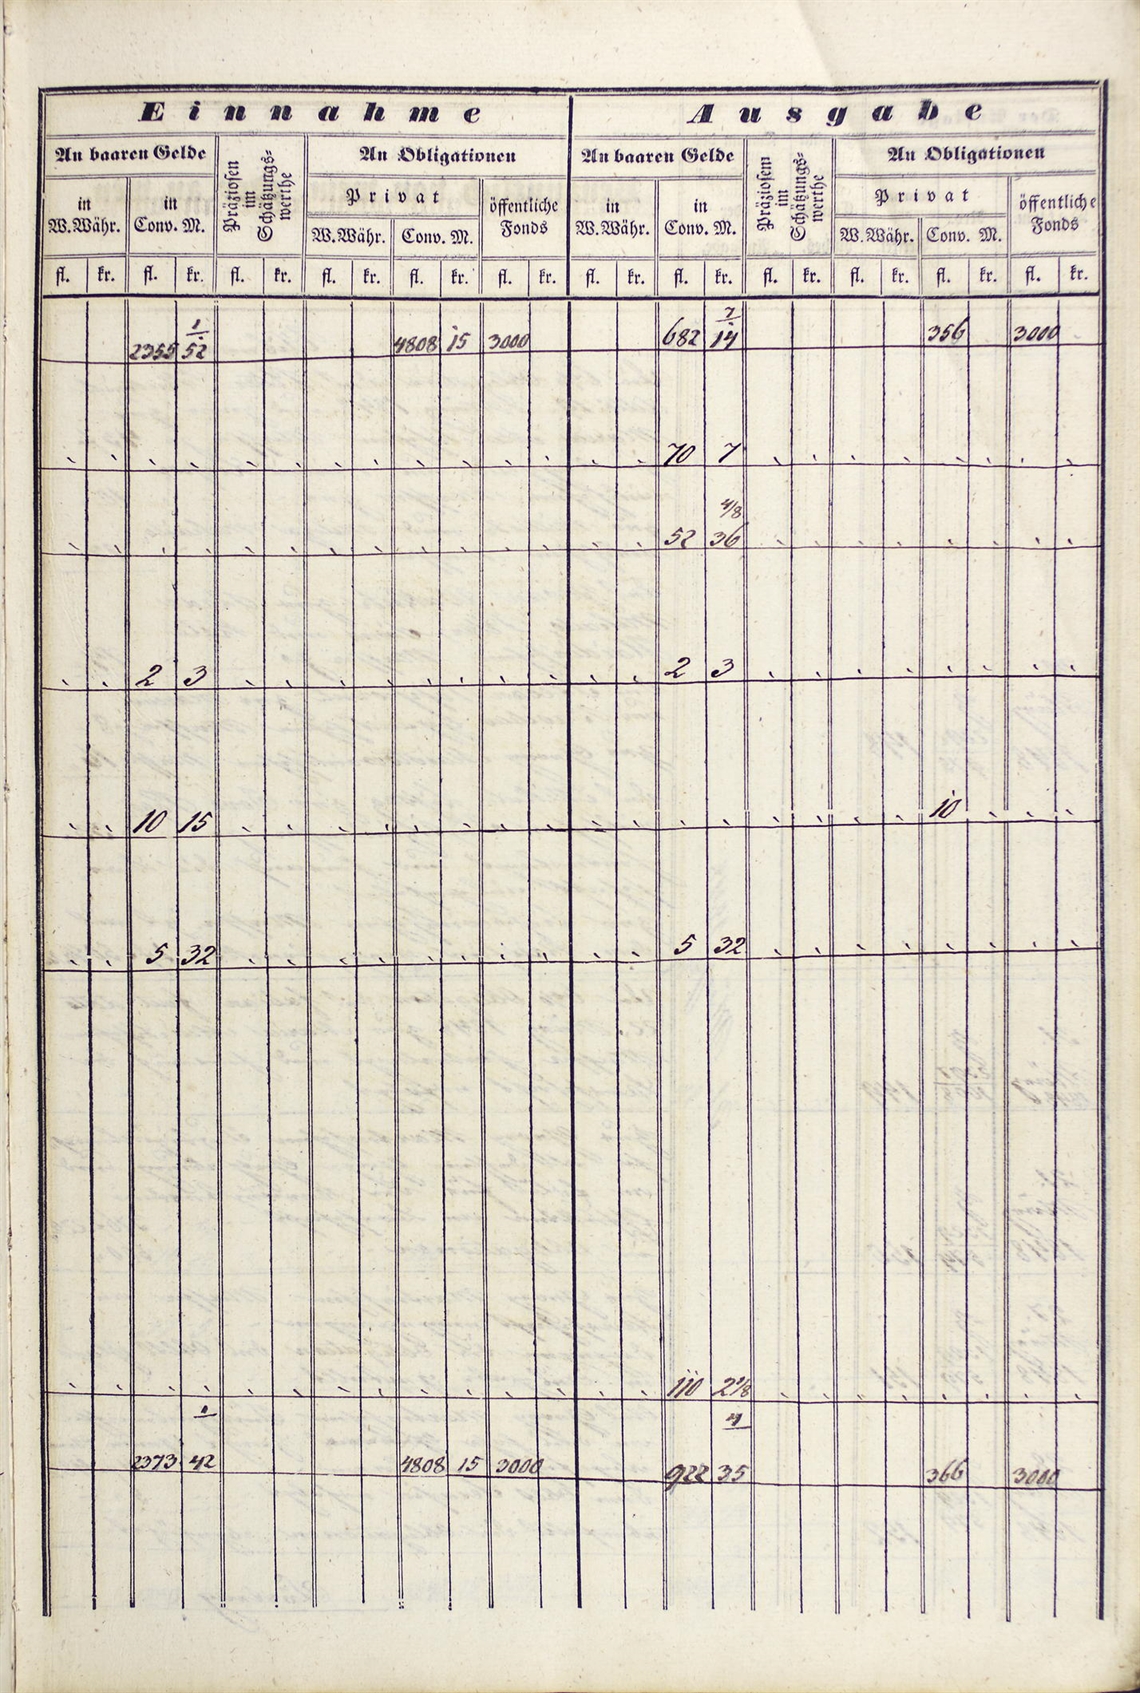 Einnahme Ausgabe
An baaren Gelde Präziosen im Schätzungs-werthe An Obligationen An baaren Gelde Präziosem im Schätzungs-werthe An Obligationen
in W.Währ. in Conv. M. Privat öffentliche Fonds in W.Währ. in Conv. M. Privat öffentliche Fonds
W.Währ. Conv. M. W.Währ. Conv. M.
fl. kr. fl. kr. fl. kr. fl. kr. fl. kr. fl. kr. fl. kr. fl. kr. fl. kr. fl. kr. fl. kr. fl. kr.
1 7
2355 52 4808 15 3000 682 14 356 3000
70 7
4/8
52 36
2 3 2 3
10 15 10
5 32 5 32
110 2 1/8
1 4
2373 42 4808 15 3000 922 35 366 3000